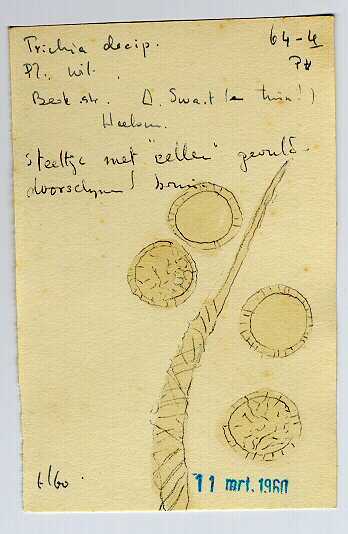 Trichia decip. 64-4
Pl. wit.
Beek str. D. Swart (en tuin!)
Haelen.
Steeltje met "cellen" gevuld
doorschijnend bruin.
4/60.
11 mrt. 1960